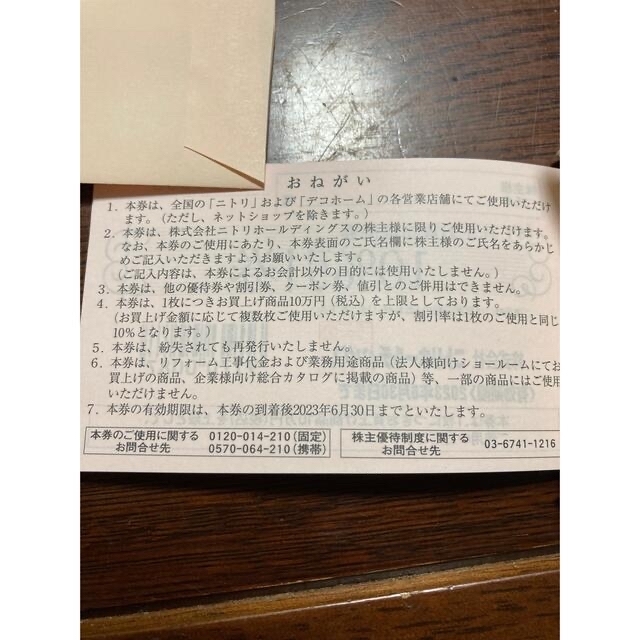 おねがい
1. 本券は、全国の「ニトリ」および「デコホーム」の各営業店舗にてご使用いただけ
ます。（ただし、ネットショップを除きます。）
2. 本券は、株式会社ニトリホールディングスの株主様に限りご使用いただけます。
なお、本券のご使用にあたり、本券表面のご氏名欄に株主様のご氏名をあらかじ
めご記入いただきますようお願いいたします。
（ご記入内容は、本券によるお会計以外の目的には使用いたしません。）
3. 本券は、他の優待券や割引券、クーポン券、値引とのご併用はできません。
4. 本券は、1枚につきお買上げ商品10万円（税込）を上限としております。
（お買上げ金額に応じて複数枚ご使用いただけますが、割引率は1枚のご使用と同じ
10％となります。）
5. 本券は、紛失されても再発行いたしません。
6. 本券は、リフォーム工事代金および業務用途商品（法人様向けショールームにてお
買上げの商品、企業様向け総合カタログに掲載の商品）等、一部の商品にはご使用
いただけません。
7. 本券の有効期限は、本券の到着後2023年6月30日までといたします。
本券のご使用に関する
お問合せ先
0120-014-210（固定）
0570-064-210（携帯）
株主優待制度に関する
お問合せ先
03-6741-1216